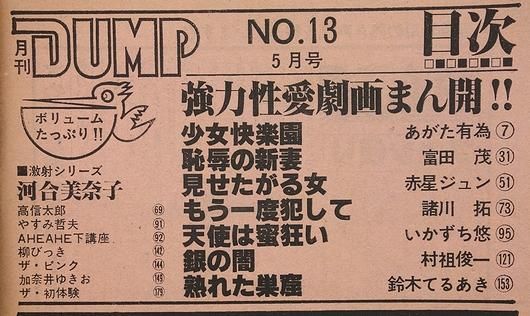 月刊DUMP
NO.13
5月号
目次
ボリューム
たっぷり!!
強力性愛劇画まん開!!
少女快楽園 あがた有為 7
恥辱の新妻 富田 茂 31
見せたがる女 赤星ジュン 51
もう一度犯して 諸川 拓 73
天使は蜜狂い いかずち悠 95
銀の闇 村祖俊一 121
熟れた巣窟 鈴木てるあき 153
■激射シリーズ
河合美奈子
高信太郎 69
やすみ哲夫 91
AHEAHE下講座 92
柳びっき 142
ザ・ピンク 144
加奈井ゆきお 145
ザ・初体験 179